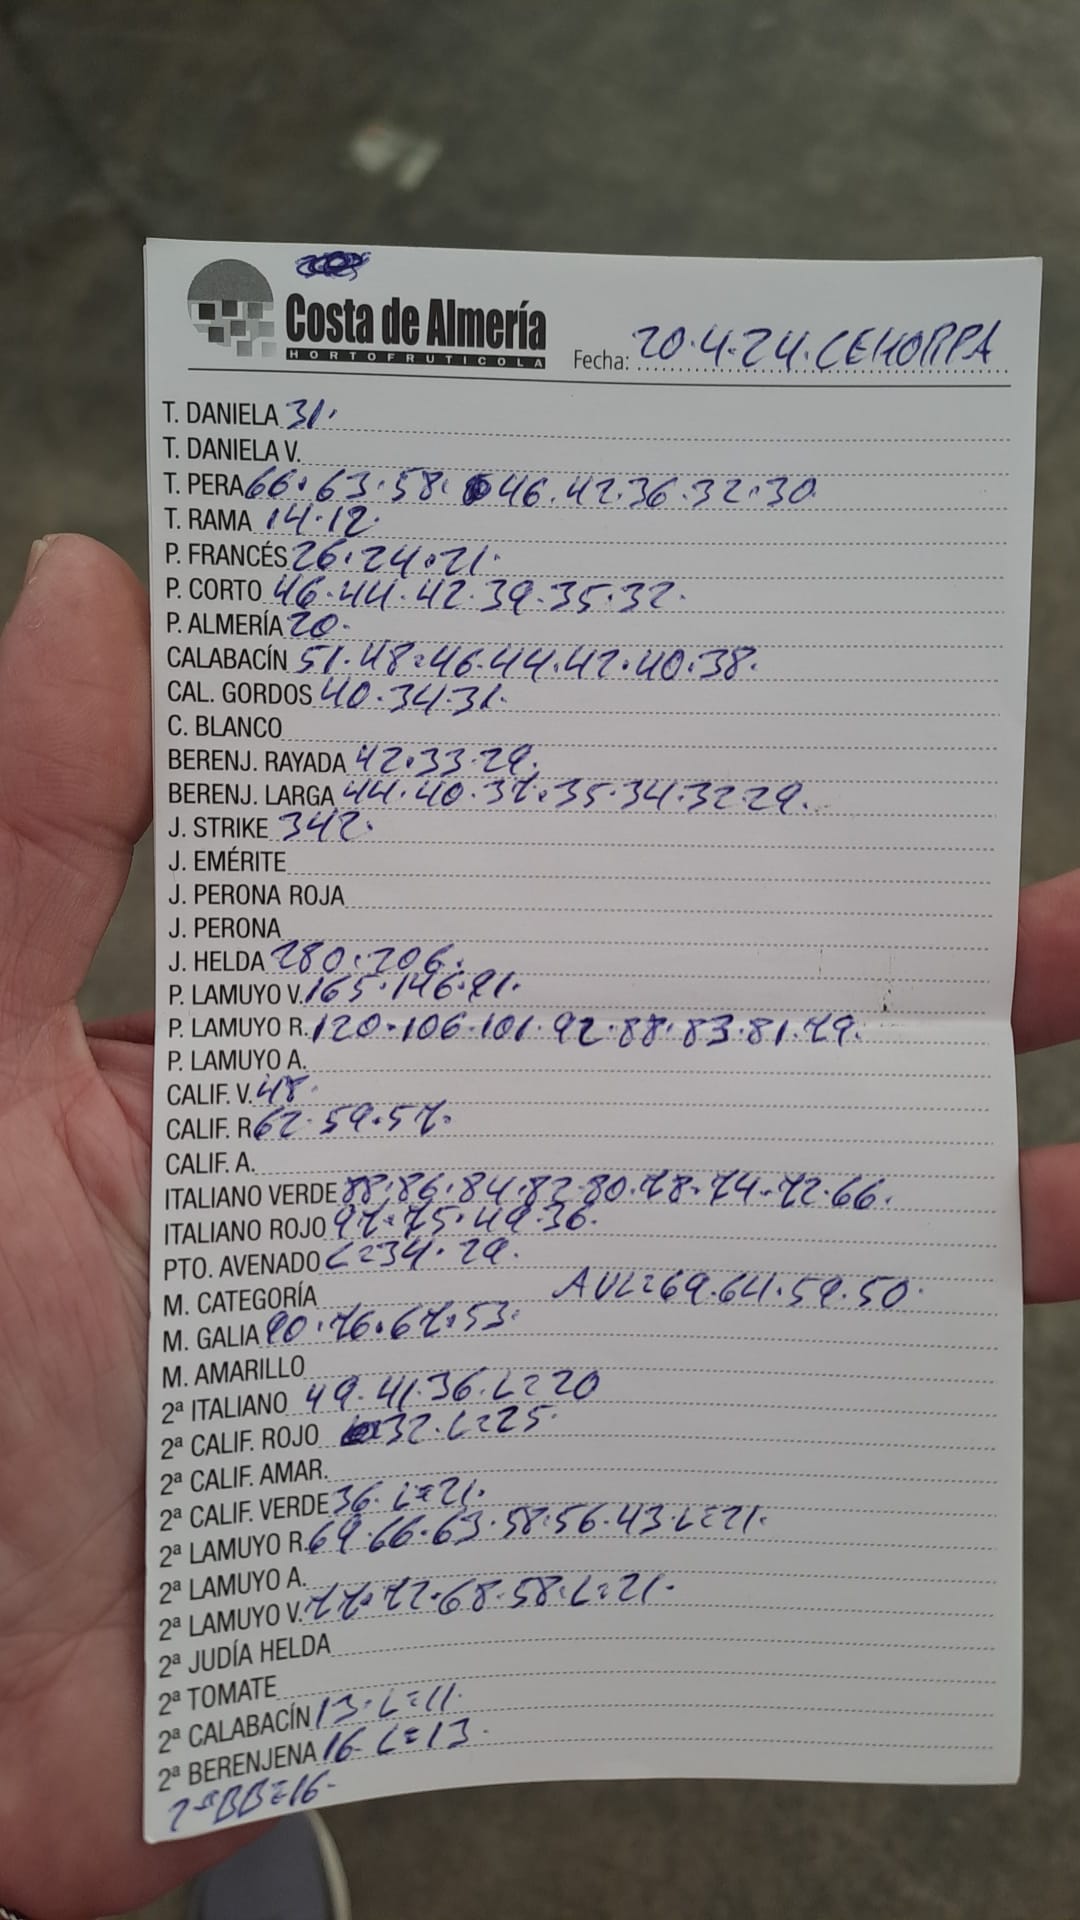 Costa de Almería
HORTOFRUTICOLA
Fecha: 20.4.24.CEHORPA
T. DANIELA 31.
T. DANIELA V.
T. PERA 66.63.58. 46.42.36.32.30
T. RAMA 14.12.
P. FRANCÉS 26.24.21.
P. CORTO 46.44.42.39.35.32.
P. ALMERÍA 20.
CALABACÍN 51.48.46.44.42.40.38.
CAL. GORDOS 40.34.31.
C. BLANCO
BERENJ. RAYADA 42.33.29.
BERENJ. LARGA 44.40.37.35.34.32.29.
J. STRIKE 342.
J. EMÉRITE
J. PERONA ROJA
J. PERONA
J. HELDA 280.206.
P. LAMUYO V. 165.146.91.
P. LAMUYO R. 120.106.101.92.88.83.81.79.
P. LAMUYO A.
CALIF. V. 48.
CALIF. R 62.59.57.
CALIF. A.
ITALIANO VERDE 88.86.84.82.80.78.74.72.66.
ITALIANO ROJO 97.75.49.36.
PTO. AVENADO L=34.29.
M. CATEGORÍA AVL=69.64.59.50.
M. GALIA 90.76.67.53.
M. AMARILLO
2ª ITALIANO 49.41.36.L=20
2ª CALIF. ROJO 32.L=25.
2ª CALIF. AMAR.
2ª CALIF. VERDE 36. L=21.
2ª LAMUYO R. 69.66.63.58.56.43.L=21.
2ª LAMUYO A.
2ª LAMUYO V. 77.72.68.58.L=21.
2ª JUDÍA HELDA
2ª TOMATE
2ª CALABACÍN 13.L=11.
2ª BERENJENA 16. L=13.
2ªBB=16.